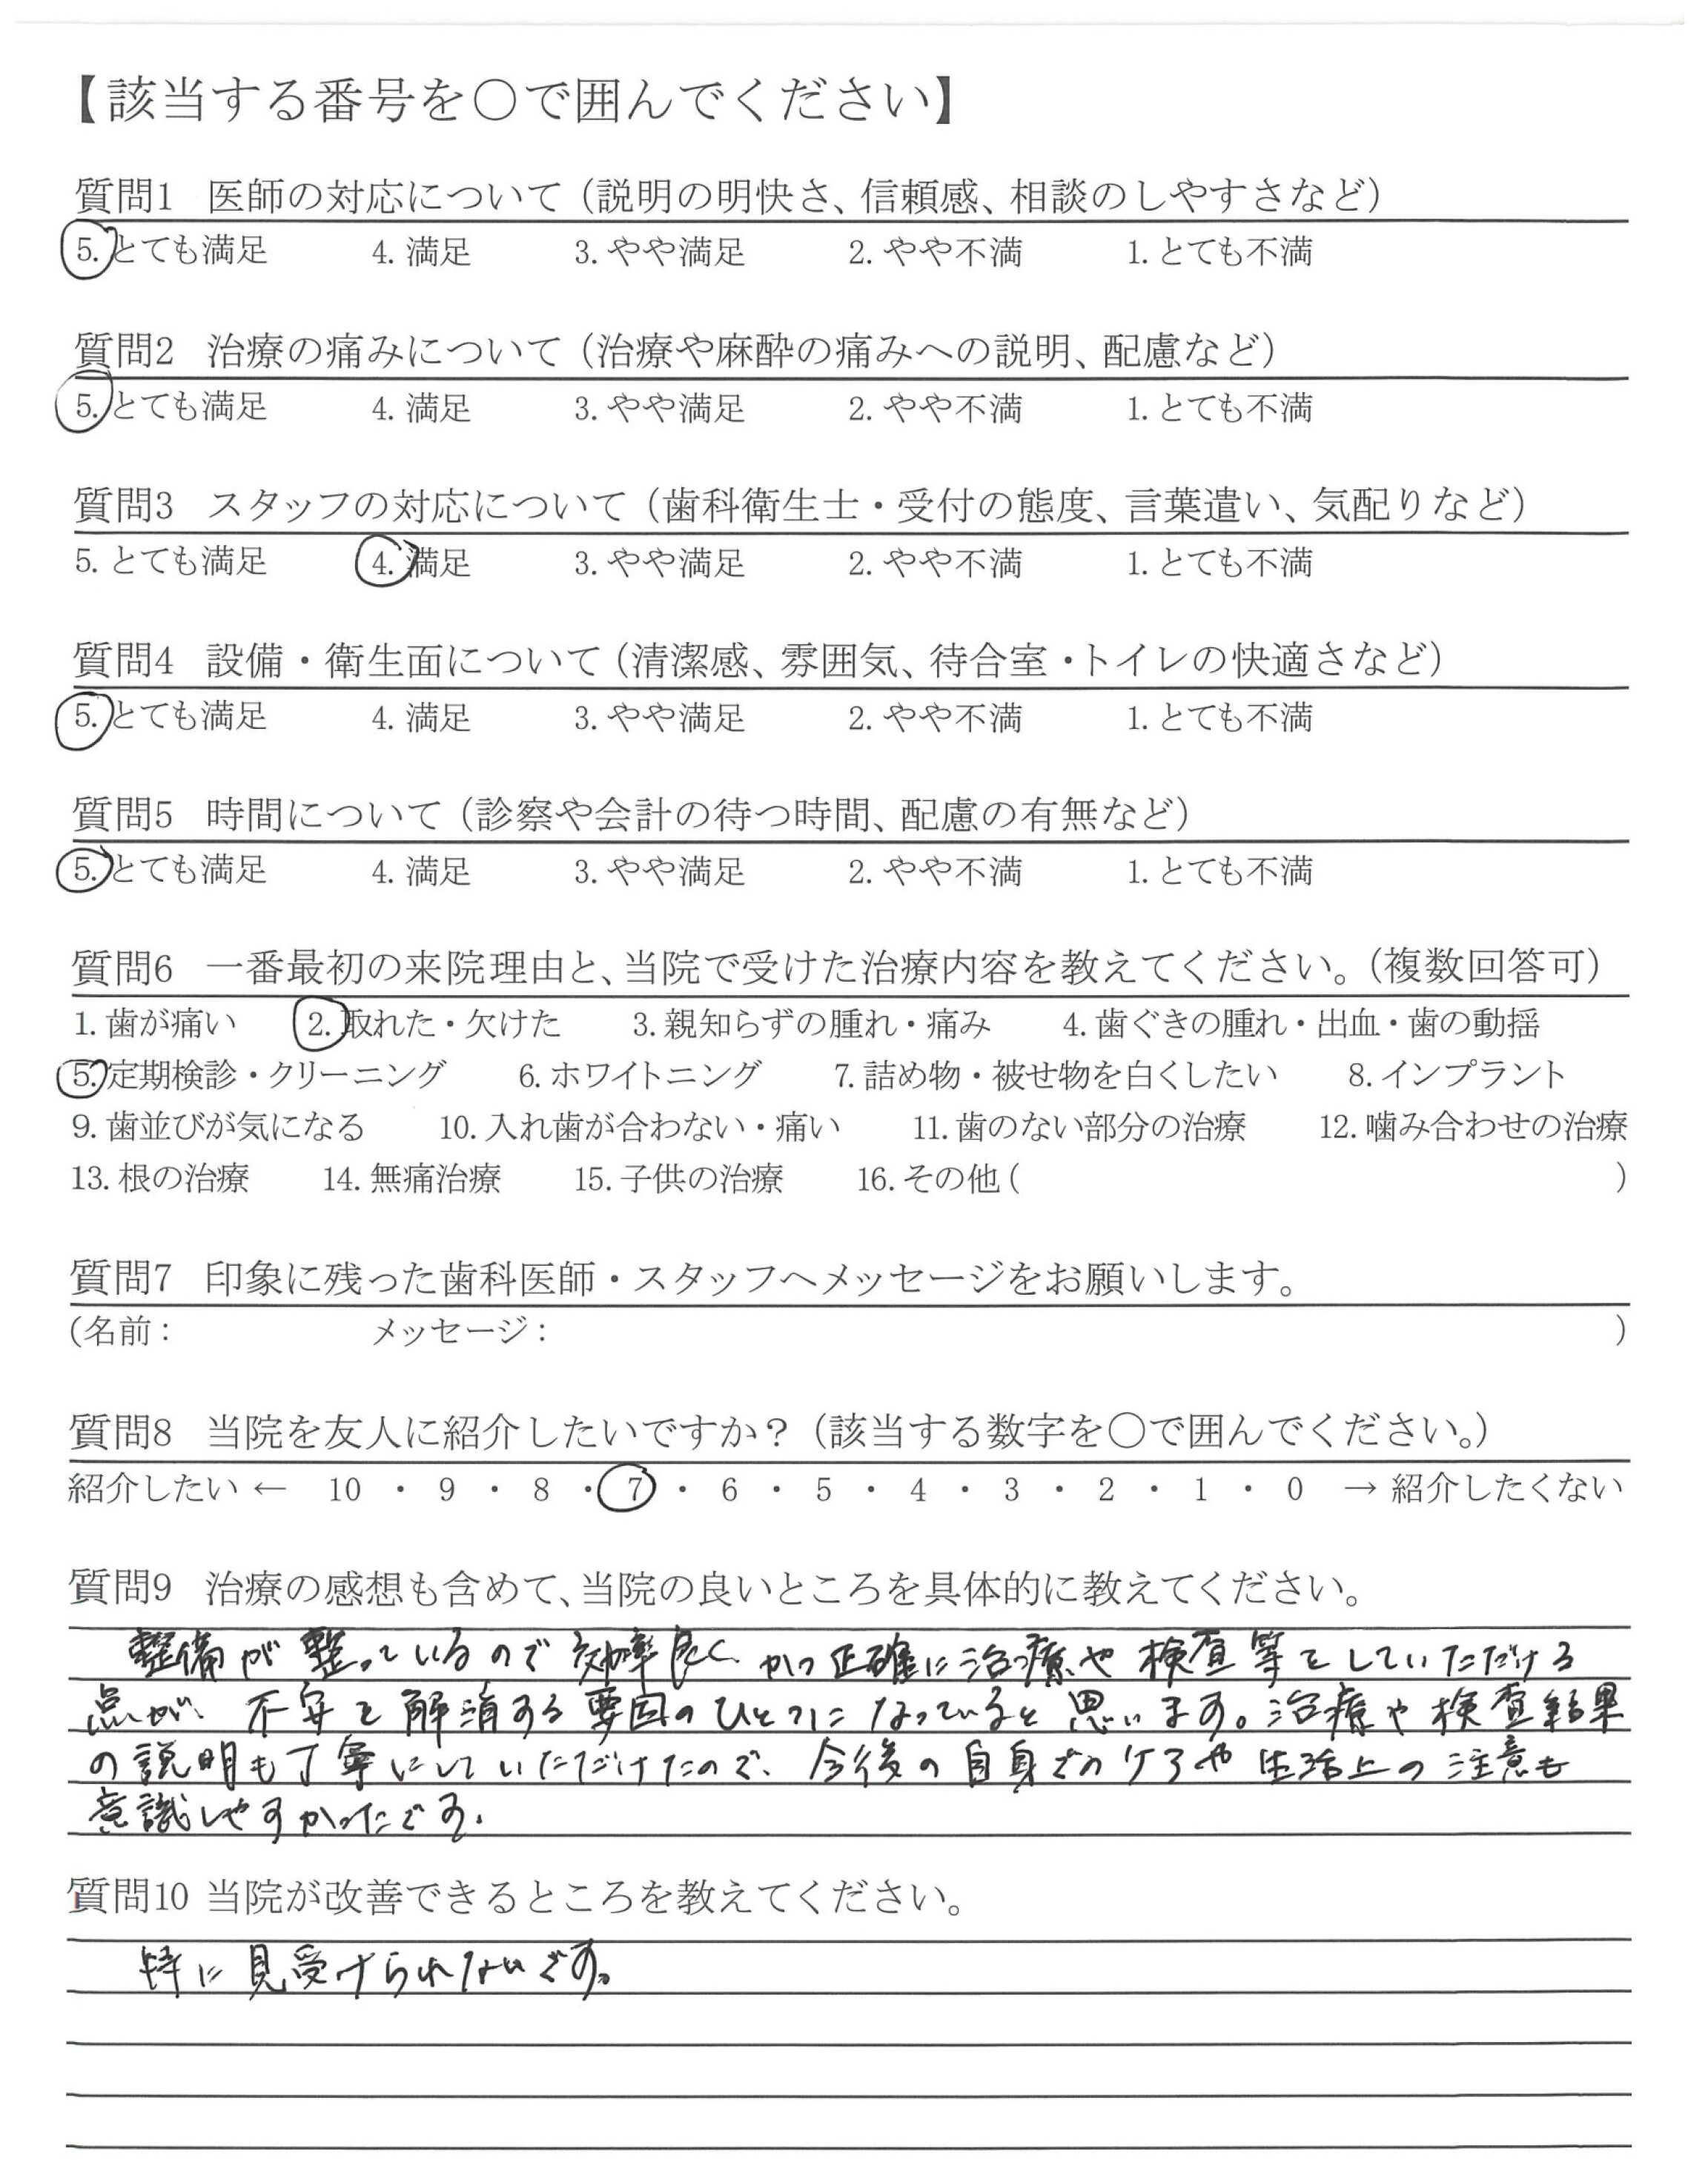 【該当する番号を〇で囲んでください】
質問1 医師の対応について（説明の明快さ、信頼感、相談のしやすさなど）
5. とても満足 4. 満足 3. やや満足 2. やや不満 1. とても不満
質問2 治療の痛みについて（治療や麻酔の痛みへの説明、配慮など）
5. とても満足 4. 満足 3. やや満足 2. やや不満 1. とても不満
質問3 スタッフの対応について（歯科衛生士・受付の態度、言葉遣い、気配りなど）
5. とても満足 4. 満足 3. やや満足 2. やや不満 1. とても不満
質問4 設備・衛生面について（清潔感、雰囲気、待合室・トイレの快適さなど）
5. とても満足 4. 満足 3. やや満足 2. やや不満 1. とても不満
質問5 時間について（診察や会計の待つ時間、配慮の有無など）
5. とても満足 4. 満足 3. やや満足 2. やや不満 1. とても不満
質問6 一番最初の来院理由と、当院で受けた治療内容を教えてください。（複数回答可）
1. 歯が痛い 2. 取れた・欠けた 3. 親知らずの腫れ・痛み 4. 歯ぐきの腫れ・出血・歯の動揺
5. 定期検診・クリーニング 6. ホワイトニング 7. 詰め物・被せ物を白くしたい 8. インプラント
9. 歯並びが気になる 10. 入れ歯が合わない・痛い 11. 歯のない部分の治療 12. 噛み合わせの治療
13. 根の治療 14. 無痛治療 15. 子供の治療 16. その他（ ）
質問7 印象に残った歯科医師・スタッフへメッセージをお願いします。
（名前： メッセージ： ）
質問8 当院を友人に紹介したいですか？（該当する数字を〇で囲んでください。）
紹介したい ← 10 ・ 9 ・ 8 ・ 7 ・ 6 ・ 5 ・ 4 ・ 3 ・ 2 ・ 1 ・ 0 → 紹介したくない
質問9 治療の感想も含めて、当院の良いところを具体的に教えてください。
整備が整っているので効率良く、かつ正確に治療や検査等をしていただける
点が、不安を解消する要因のひとつになっていると思います。治療や検査結果
の説明も丁寧にしていただけたので、今後の自身でのケアや生活上の注意も
意識しやすかったです。
質問10 当院が改善できるところを教えてください。
特に見受けられないです。